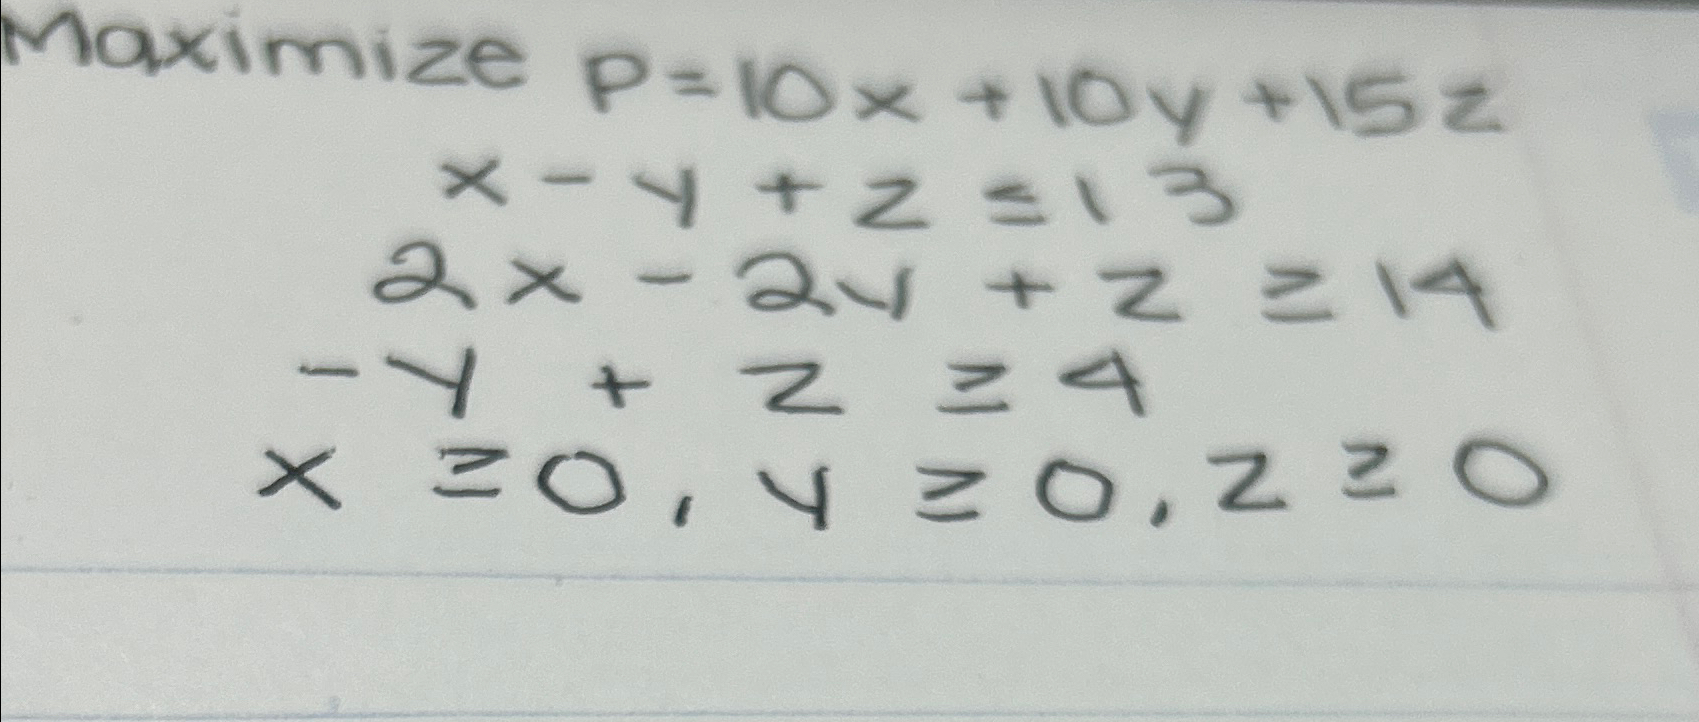 Maximize P=10x+10y+15z
x-y+z≤13
2x-2y+z≥14
-y+z≥4
x≥0, y≥0, z≥0